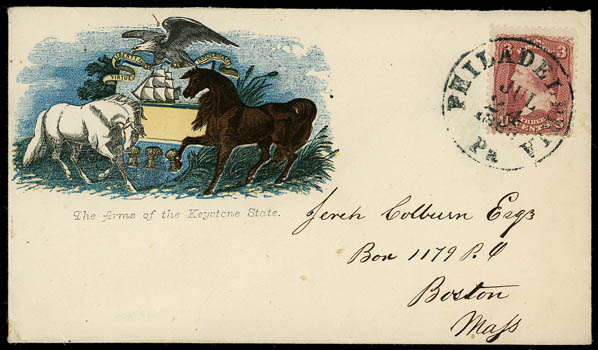 VIRTUE LIBERTY INDEPENDENCE
The Arms of the Keystone State.
3 3
THREE CENTS
PHILADELPHIA
JUL
Pa
Jereh Colburn Esqr
Box 1179 P.O
Boston
Mass